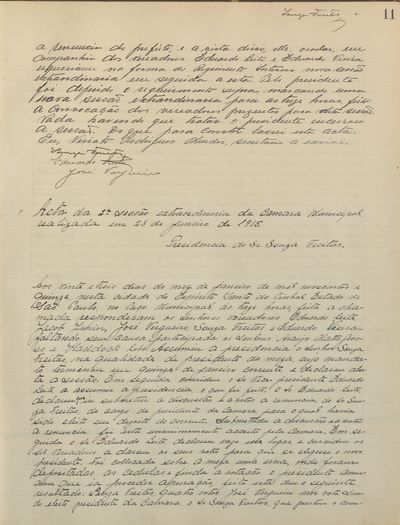 Souza Freitas 11
a renuncia do prefeito, e a vista disso, elle orador, em
companhia dos vereadores Eduardo Leite e Eduardo Vieira
requeriam na forma do regimento interno nova sessão
extraordinaria em seguida a esta. Pelo presidente
foi deferido o requerimento supra marcando uma
nova sessão extraordinaria para as treze horas, feita
a convocação dos vereadores presentes por esta sessão.
Nada havendo que tratar o presidente encerrou
a sessão. Do que para constar lavrei esta acta.
Eu, Renato Rodrigues Mendes, secretario a escrevi.
Souza Freitas
Eduardo Leite
José Vergueiro
Acta da 2ª sessão extraordinaria da Camara Municipal
realizada em 23 de janeiro de 1915.
Presidencia do Sr Souza Freitas.
Aos vinte e treis dias do mez de janeiro de mil novecentos e
quinze, nesta cidade do Espirito Santo do Pinhal Estado de
São Paulo, no Paço Municipal as treze horas, feita a cha-
mada responderam os senhores vereadores Eduardo Leite,
José Vergueiro, Souza Freitas e Eduardo Vieira
faltando sem causa participada os senhores Araujo
e assumiu a presidencia o senhor Souza
Freitas, na qualidade de presidente da mesa cujo manda-
to terminou em quinze de janeiro corrente e declarou aber-
ta a sessão. Em seguida convidou o Sr Eduardo
Leite a assumir a presidencia, o que foi feito. O Sr Eduardo Leite
declarou que submettia a discussão e votos a renuncia do Sr Sou-
za Freitas, do cargo de presidente da Camara, para o qual havia
sido eleito em do corrente. Submettida a discussão e a votos
a renuncia foi esta unanimemente acceita pela Camara. Em se-
guida o Sr Eduardo Leite declarou vago este lugar e convidou os
Srs vereadores a darem os seus votos para que se elegesse o novo
presidente. Foi collocada sobre a mesa uma urna, onde foram
depositadas as cedulas e finda a votação o presidente annun-
ciou que ia proceder apuração, feita esta deu o seguinte
resultado: Souza Freitas, quatro votos, José Vergueiro um voto, sen-
do eleito presidente da Camara o Sr Souza Freitas, que prestou o com-